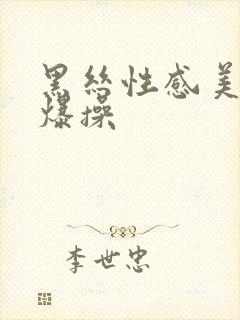 黑丝性感美
爆操
李世忠